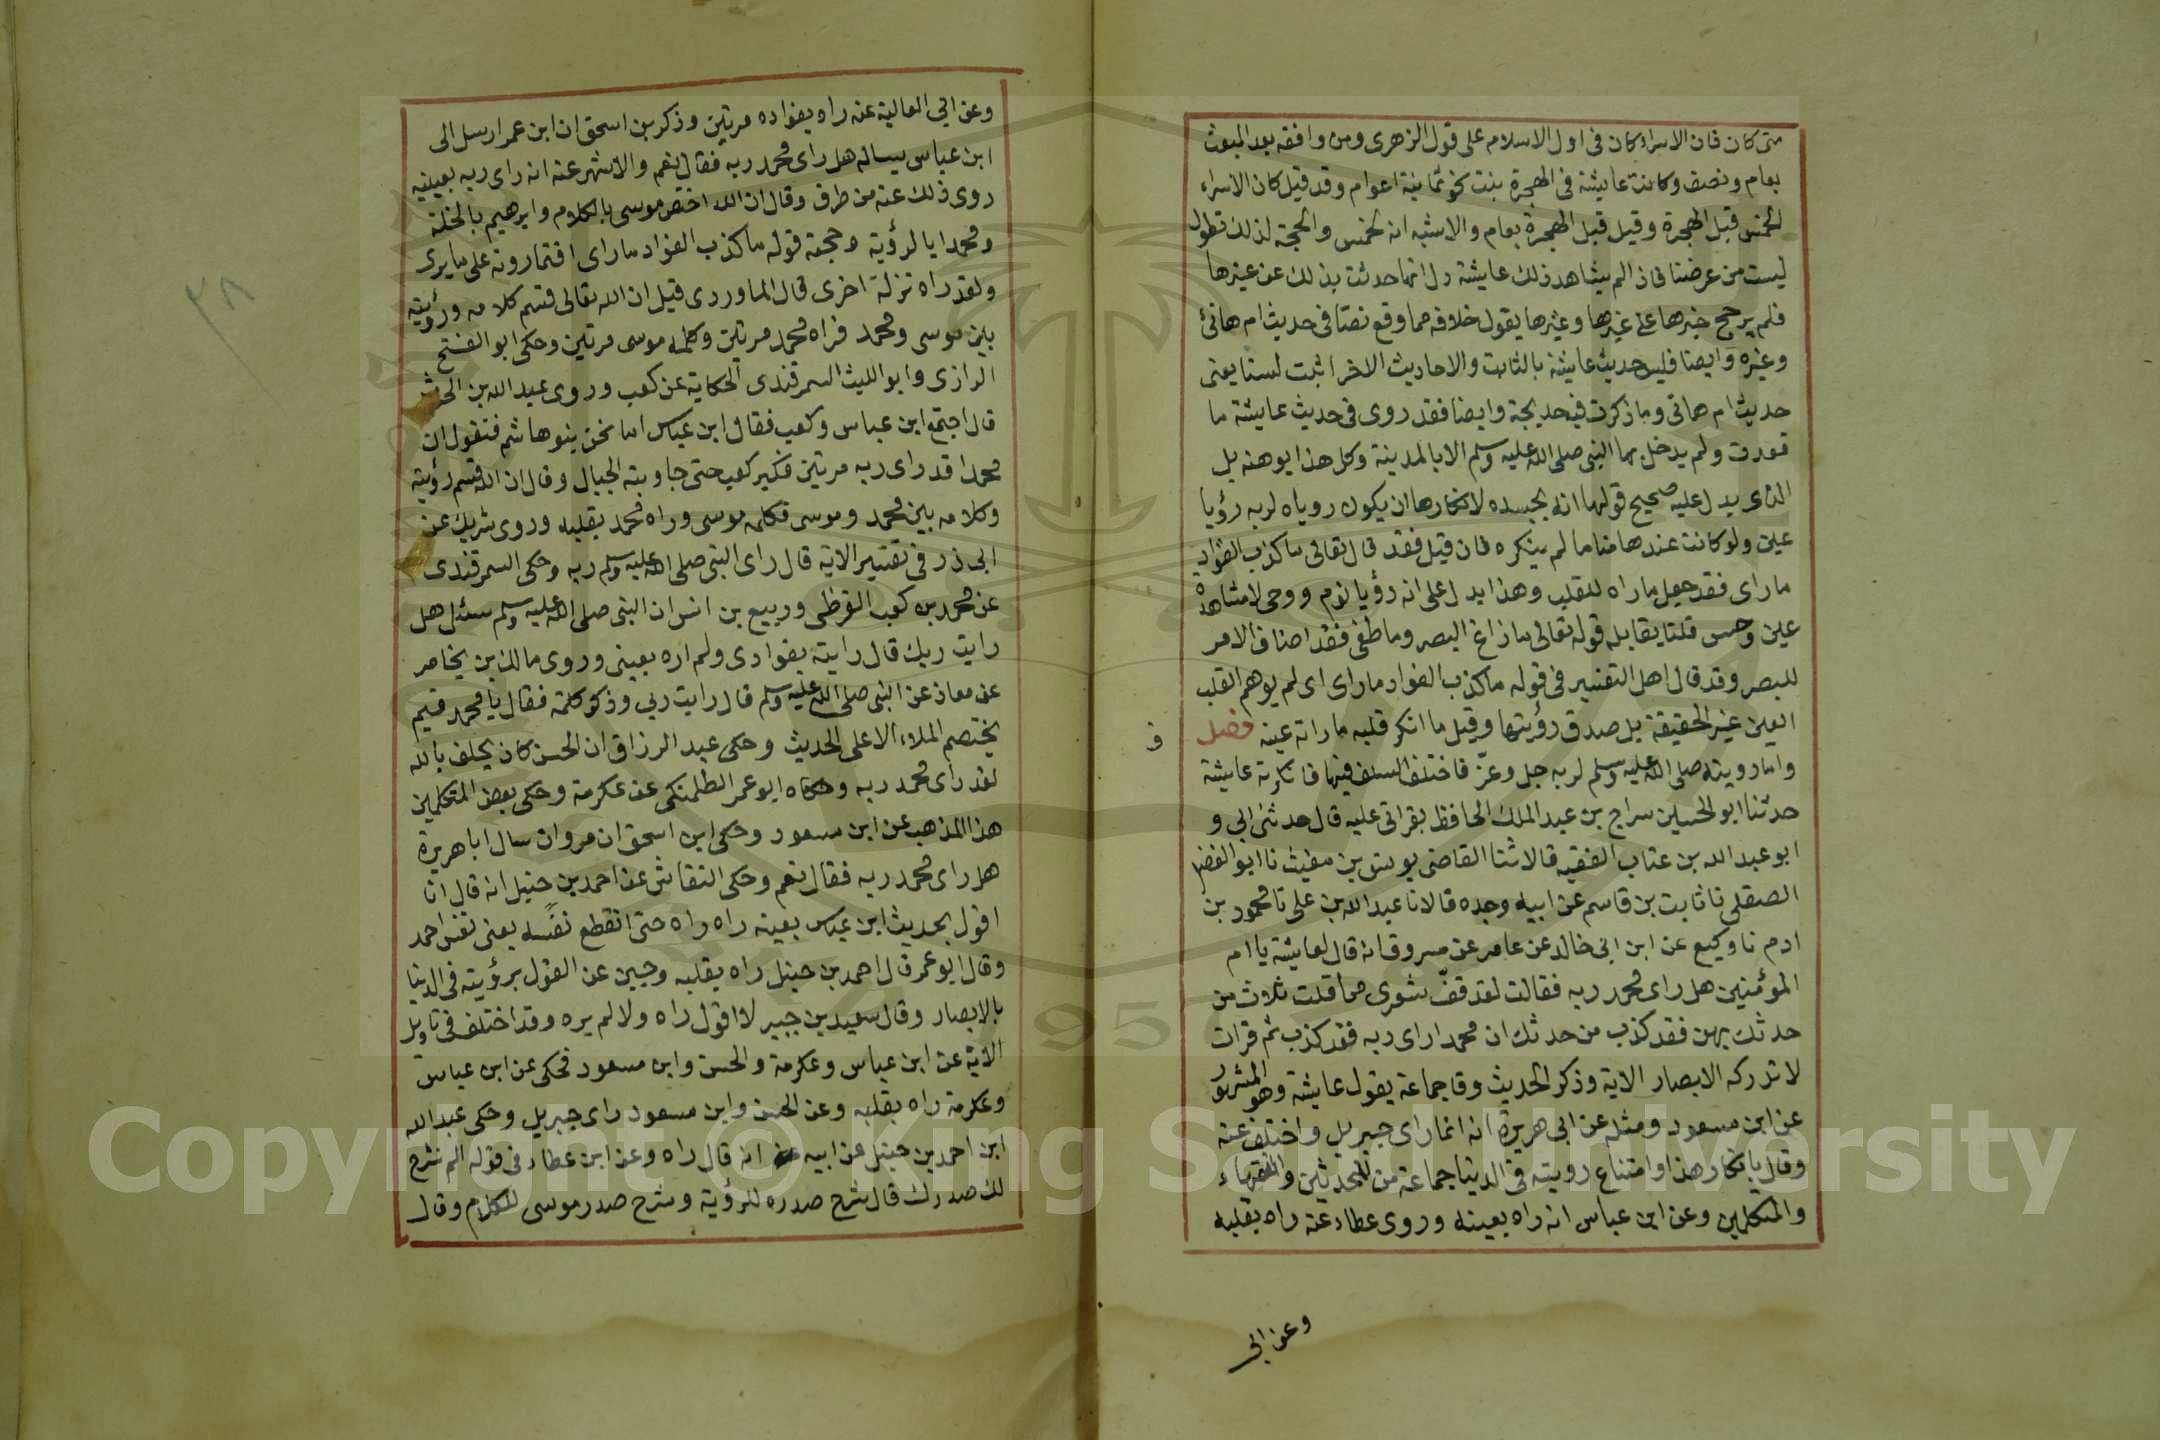 متى كان فان الاسراء كان فى اول الاسلام على قول الزهرى ومن وافقه بعد المبعث
بعام ونصف وكانت عايشة فى الهجرة بنت نحو ثمانية اعوام وقد قيل كان الاسراء
لخمس قبل الهجرة وقيل قبل الهجرة بعام والاشبه انه لخمس والحجة لذلك تطول
ليست من غرضنا فاذا لم يشاهد ذلك عايشة دل انها حدثت بذلك عن غيرها
فلم يرجح خبرها على خبر غيرها وغيرها يقول خلافه مما وقع نصا فى حديث ام هانئ
وغيره وايضا فليس حديث عايشة بالثابت والاحاديث الاخر اثبت لسنا يعنى
حديث ام هانى وما ذكرت فيه خديجة وايضا فقد روى فى حديث عايشة ما
فقدت ولم يدخل بها النبى صلى الله عليه وسلم الا بالمدينة وكل هذا يوهنه بل
الذى يدل عليه صحيح قولها انه بجسده لانكارها ان يكون روياه لربه رؤيا
عين ولو كانت عندها مناما لم ينكره فان قيل فقد قال تعالى ما كذب الفؤاد
ما راى فقد جعل ماراه للقلب وهذا يدل على انه رؤيا نوم ووحى لا مشاهدة
عين وحس قلنا يقابله قوله تعالى ما زاغ البصر وما طغى فقد اضاف الامر
للبصر وقد قال اهل التفسير فى قوله ما كذب الفواد ما راى اى لم يوهم القلب
العين غير الحقيقة بل صدق رؤيتها وقيل ما انكر قلبه ما راته عينه فصل
واما رويته صلى الله عليه وسلم لربه جل وعز فاختلف السلف فيها فانكرته عايشة
حدثنا ابو الحسين سراج بن عبد الملك الحافظ بقراتى عليه قال حدثنى ابى و
ابو عبد الله بن عتاب الفقيه قالا ثنا القاضى يونس بن مغيث نا ابو الفضل
الصقلى نا ثابت بن قاسم عن ابيه وجده قالا نا عبد الله بن على نا محمود بن
ادم نا وكيع عن ابن ابى خالد عن عامر عن مسروق انه قال لعايشة يا ام
المؤمنين هل راى محمد ربه فقالت لقد قف شعرى مما قلت ثلاث من
حدثك بهن فقد كذب من حدثك ان محمدا راى ربه فقد كذب ثم قرات
لا تدركه الابصار الاية وذكر الحديث وقا جماعة بقول عايشة وهو المشهور
عن ابن مسعود ومثله عن ابى هريرة انه انما راى جبريل واختلف عنه
وقال بانكار هذا وامتناع رويته فى الدنيا جماعة من المحدثين والفقهاء
والمتكلمين وعن ابن عباس انه راه بعينه وروى عطاء عنه راه بقلبه
وعن ابى
ف
وعن ابى العالية عنه راه بفواده مرتين وذكر بن اسحق ان ابن عمر ارسل الى
ابن عباس يساله هل راى محمد ربه فقال نعم والاشهر عنه انه راى ربه بعينيه
روى ذلك عنه من طرق وقال ان الله اختص موسى بالكلام وابرهيم بالخلة
ومحمدا بالرؤية وحجته قوله ما كذب الفواد ما راى افتمارونه على ما يرى
ولقد راه نزلة اخرى قال الماوردى قيل ان الله تعالى قسم كلامه ورؤيته
بين موسى ومحمد فراه محمد مرتين وكلمه موسى مرتين وحكى ابو الفتح
الرازى وابو الليث السمرقندى الحكاية عن كعب وروى عبد الله بن الحرث
قال اجتمع ابن عباس وكعب فقال ابن عباس اما نحن بنوها شم فنقول ان
محمدا قد راى ربه مرتين فكبر كعب حتى جاوبته الجبال وقال ان الله قسم رؤيته
وكلامه بين محمد وموسى فكلمه موسى وراه محمد بقلبه وروى شريك عن
ابى ذر فى تفسير الاية قال راى النبى صلى الله عليه وسلم ربه وحكى السمرقندى
عن محمد بن كعب القرظى وربيع بن انس ان النبى صلى الله عليه وسلم سئل هل
رايت ربك قال رايته بفوادى ولم اره بعينى وروى مالك بن يخامر
عن معاذ عن النبى صلى الله عليه وسلم قال رايت ربى وذكر كلمة فقال يا محمد فيم
يختصم الملاء الاعلى الحديث وحكى عبد الرزاق ان الحسن كان يحلف بالله
لقد راى محمد ربه وحكاه ابو عمر الطلمنكى عن عكرمة وحكى بعض المتكلمين
هذا المذهب عن ابن مسعود وحكى ابن اسحق ان مروان سال ابا هريرة
هل راى محمد ربه فقال نعم وحكى النقاش عن احمد بن حنبل انه قال انا
اقول بحديث ابن عباس بعينه راه راه حتى انقطع نفسه يعنى نفس احمد
وقال ابو عمر قال احمد بن حنبل راه بقلبه وجبن عن القول برؤيته فى الدنيا
بالابصار وقال سعيد بن جبير لا اقول راه ولا لم يره وقد اختلف فى تاويل
الاية عن ابن عباس وعكرمة والحسن وابن مسعود فحكى عن ابن عباس
وعكرمة راه بقلبه وعن الحسن وابن مسعود راى جبريل وحكى عبد الله
ابن احمد بن حنبل عن ابيه انه قال راه وعن ابن عطاء فى قوله الم نشرح
لك صدرك قال شرح صدره للرؤية وشرح صدر موسى للكلام وقال
٣٨
Copyright © King Saud University